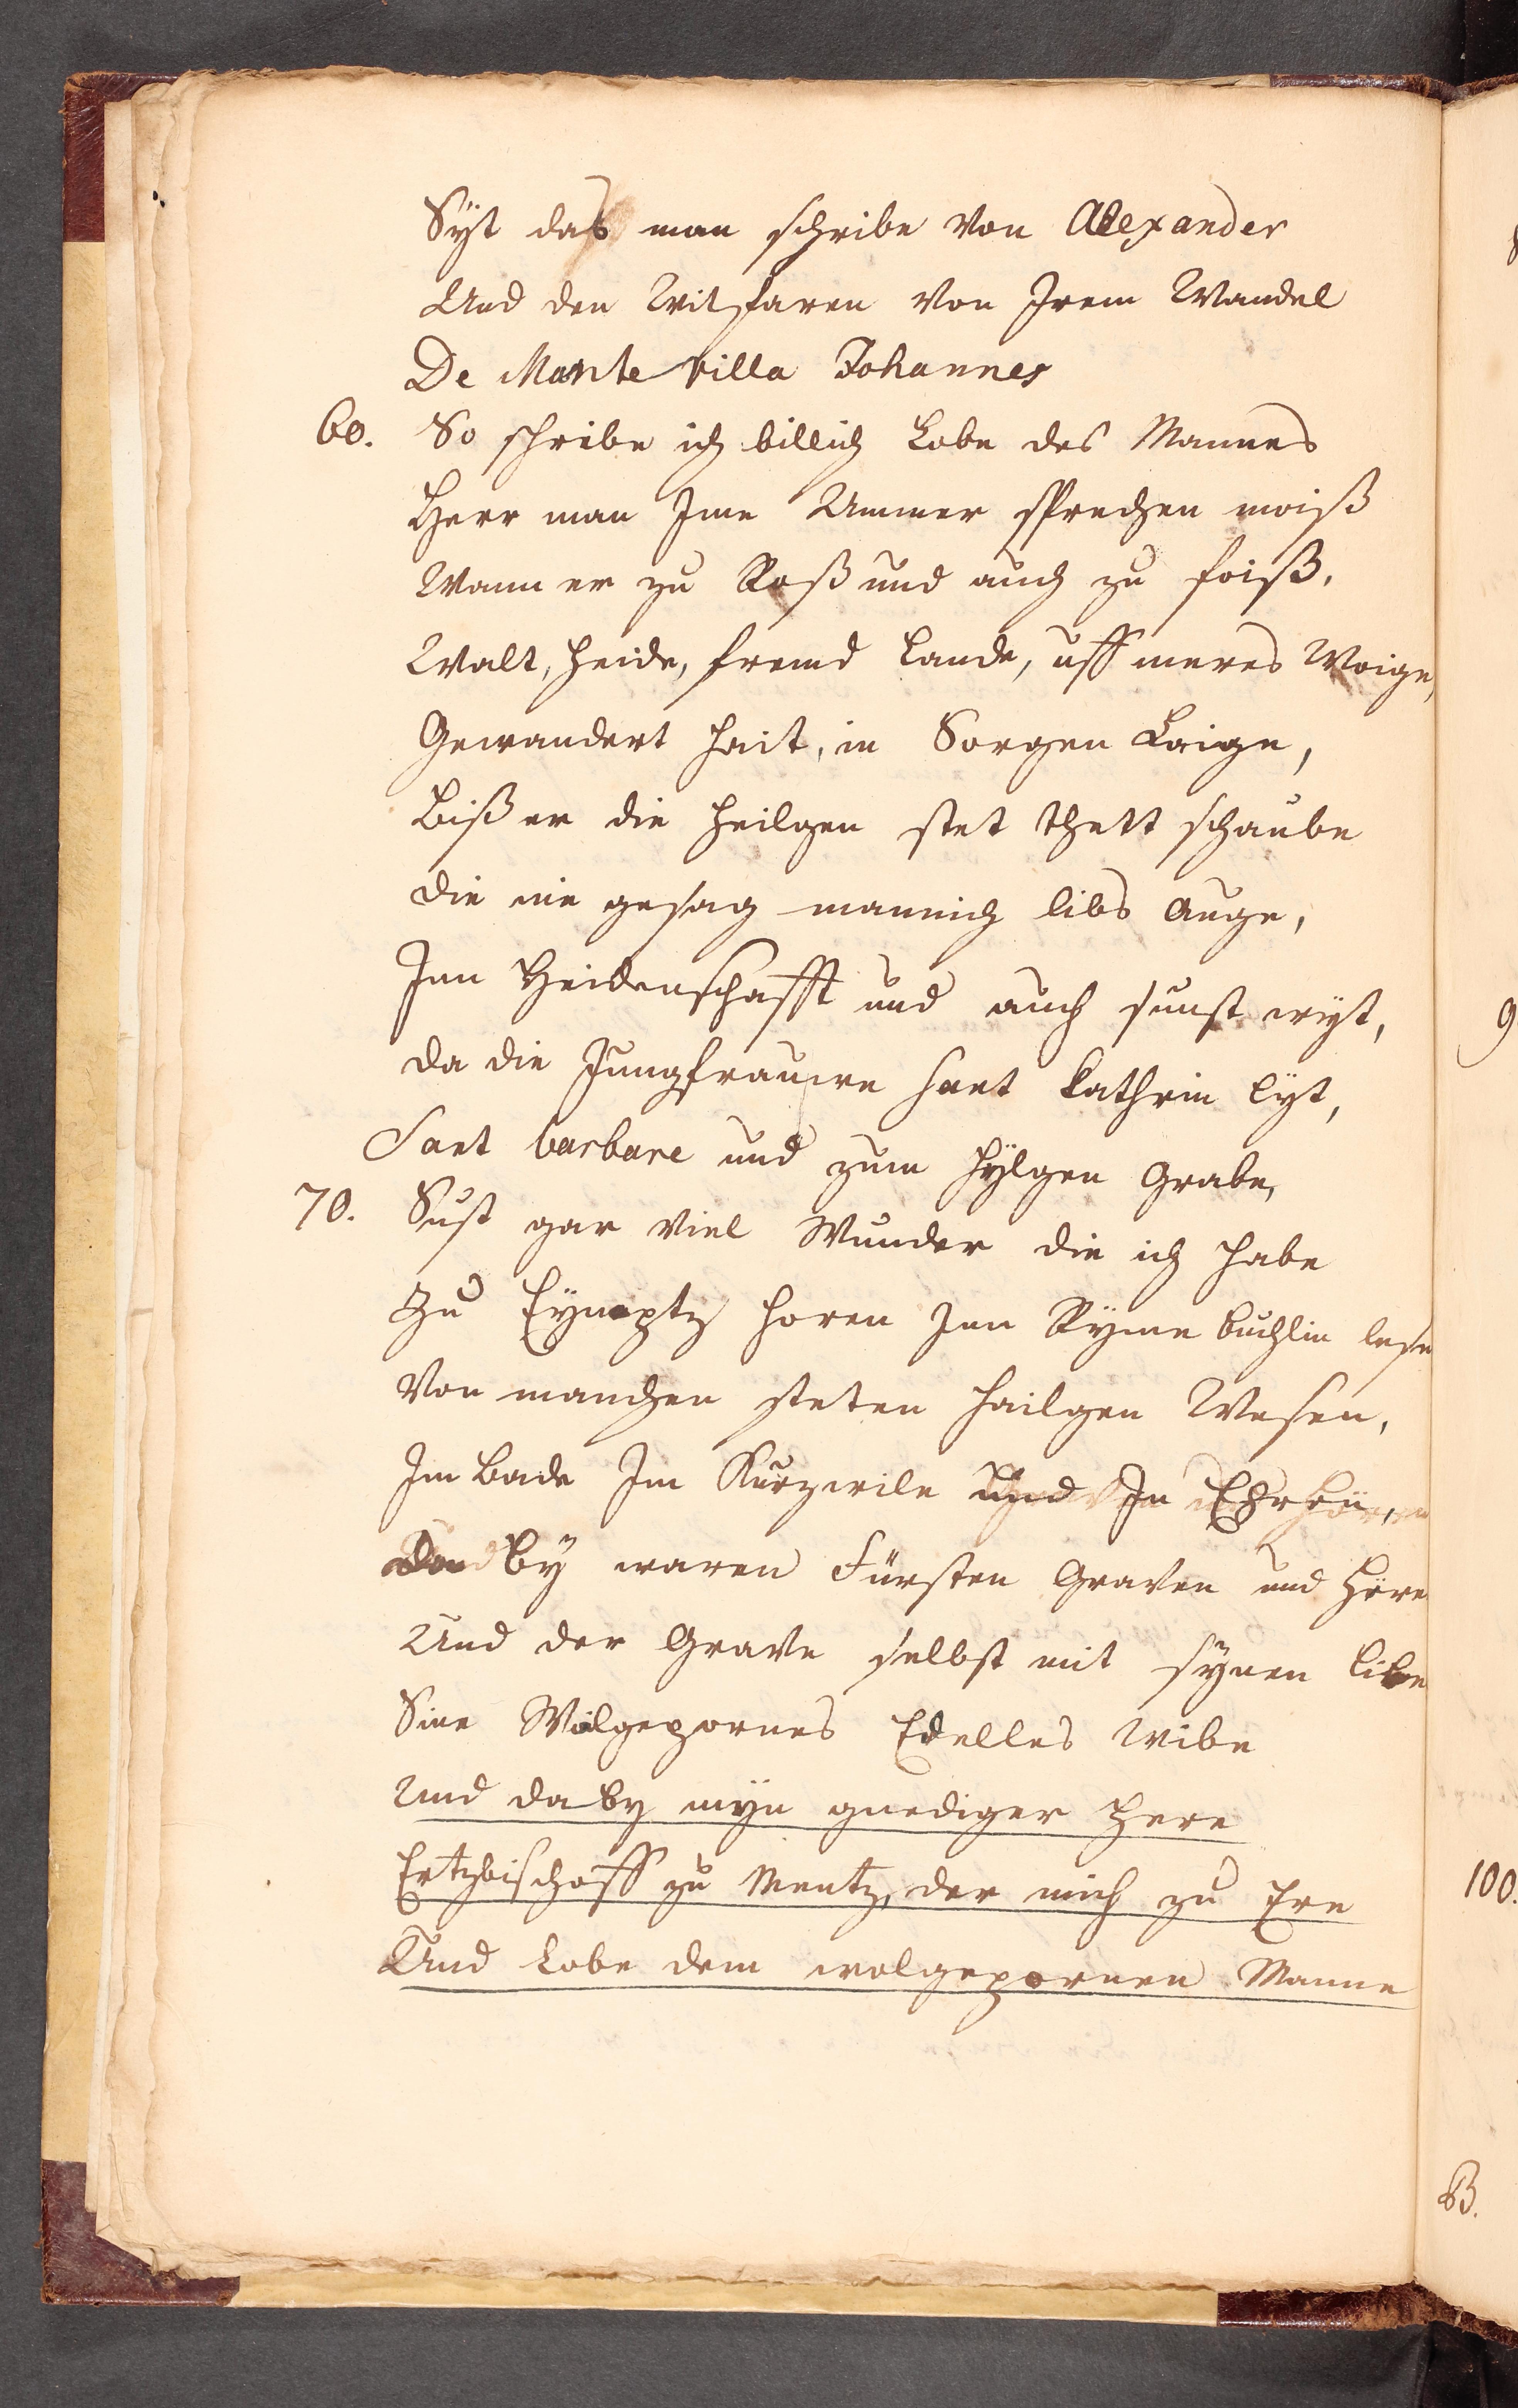 Syt das man schribe von Alexander
Und den Witfaren von Irem Wandel
De Monte villa Johannes
60. So schribe ich billich Lobe des Mannes
Herr man Ime Ummer sprechen moiß
Wann er zu Roß und auch zu foiß,
Walt, heide, fremd Lande, uff meres Woige,
Gewandert hait, in Sorgen Loige,
Biß er die heilgen stet thett schaube
die nie gesag mannich libs Auge,
Inn Heidenschafft und auch sunst wyt,
da die Jungfrauwe sant Kathrin lyt,
Sant barbare und zum hylgen Grabe,
70. Sust gar viel Wunder die ich habe
Zu horen Inn Ryme buchlin lesen
Von manchen steten hailgen Wesen,
Im Bade Im Kurzwile Und In Ehren,
by waren Fürsten Graven und Herre
Und der Grave selbst mit synen libe
Sine Wolgepornes Edelles Wibe
Und daby myn gnediger Here
Ertzbischoff zu Mentz, der mich zu Ere
Und Lobe dem wolgepornen Manne
9
100.
B.